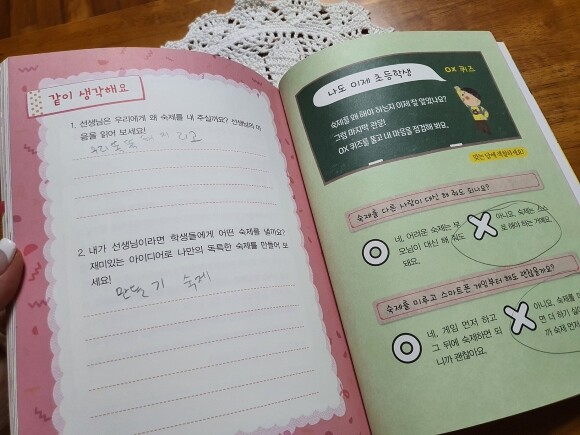 같이 생각해요
1. 선생님은 우리에게 왜 숙제를 내 주실까요? 선생님의 마
음을 읽어 보세요!
우리 똑똑 리고
2. 내가 선생님이라면 학생들에게 어떤 숙제를 낼까요?
재미있는 아이디어로 나만의 독특한 숙제를 만들어 보
세요!
만들기 숙제
나도 이제 초등학생
OX 퀴즈
숙제를 왜 해야 하는지 이제 잘 알았나요?
그럼 마지막 관문!
OX 퀴즈를 풀고 내 마음을 점검해 봐요.
맞는 답에 색칠하세요!
숙제를 다른 사람이 대신 해 줘도 되나요?
O
네, 어려운 숙제는 부
모님이 대신 해 줘도
돼요.
X
아니요, 숙제는 스스
로 해야 하는 거예요.
숙제를 미루고 스마트폰 게임부터 해도 괜찮을까요?
O
네, 게임 먼저 하고
그 뒤에 숙제하면 되
니까 괜찮아요.
X
아니요, 숙제를
면 더 하기 싫
까 숙제 먼저